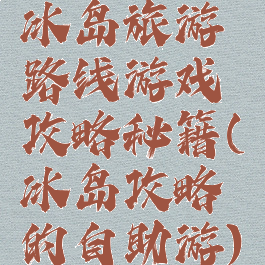 冰岛旅游
路线游戏
攻略秘籍(
冰岛攻略
的自助游)